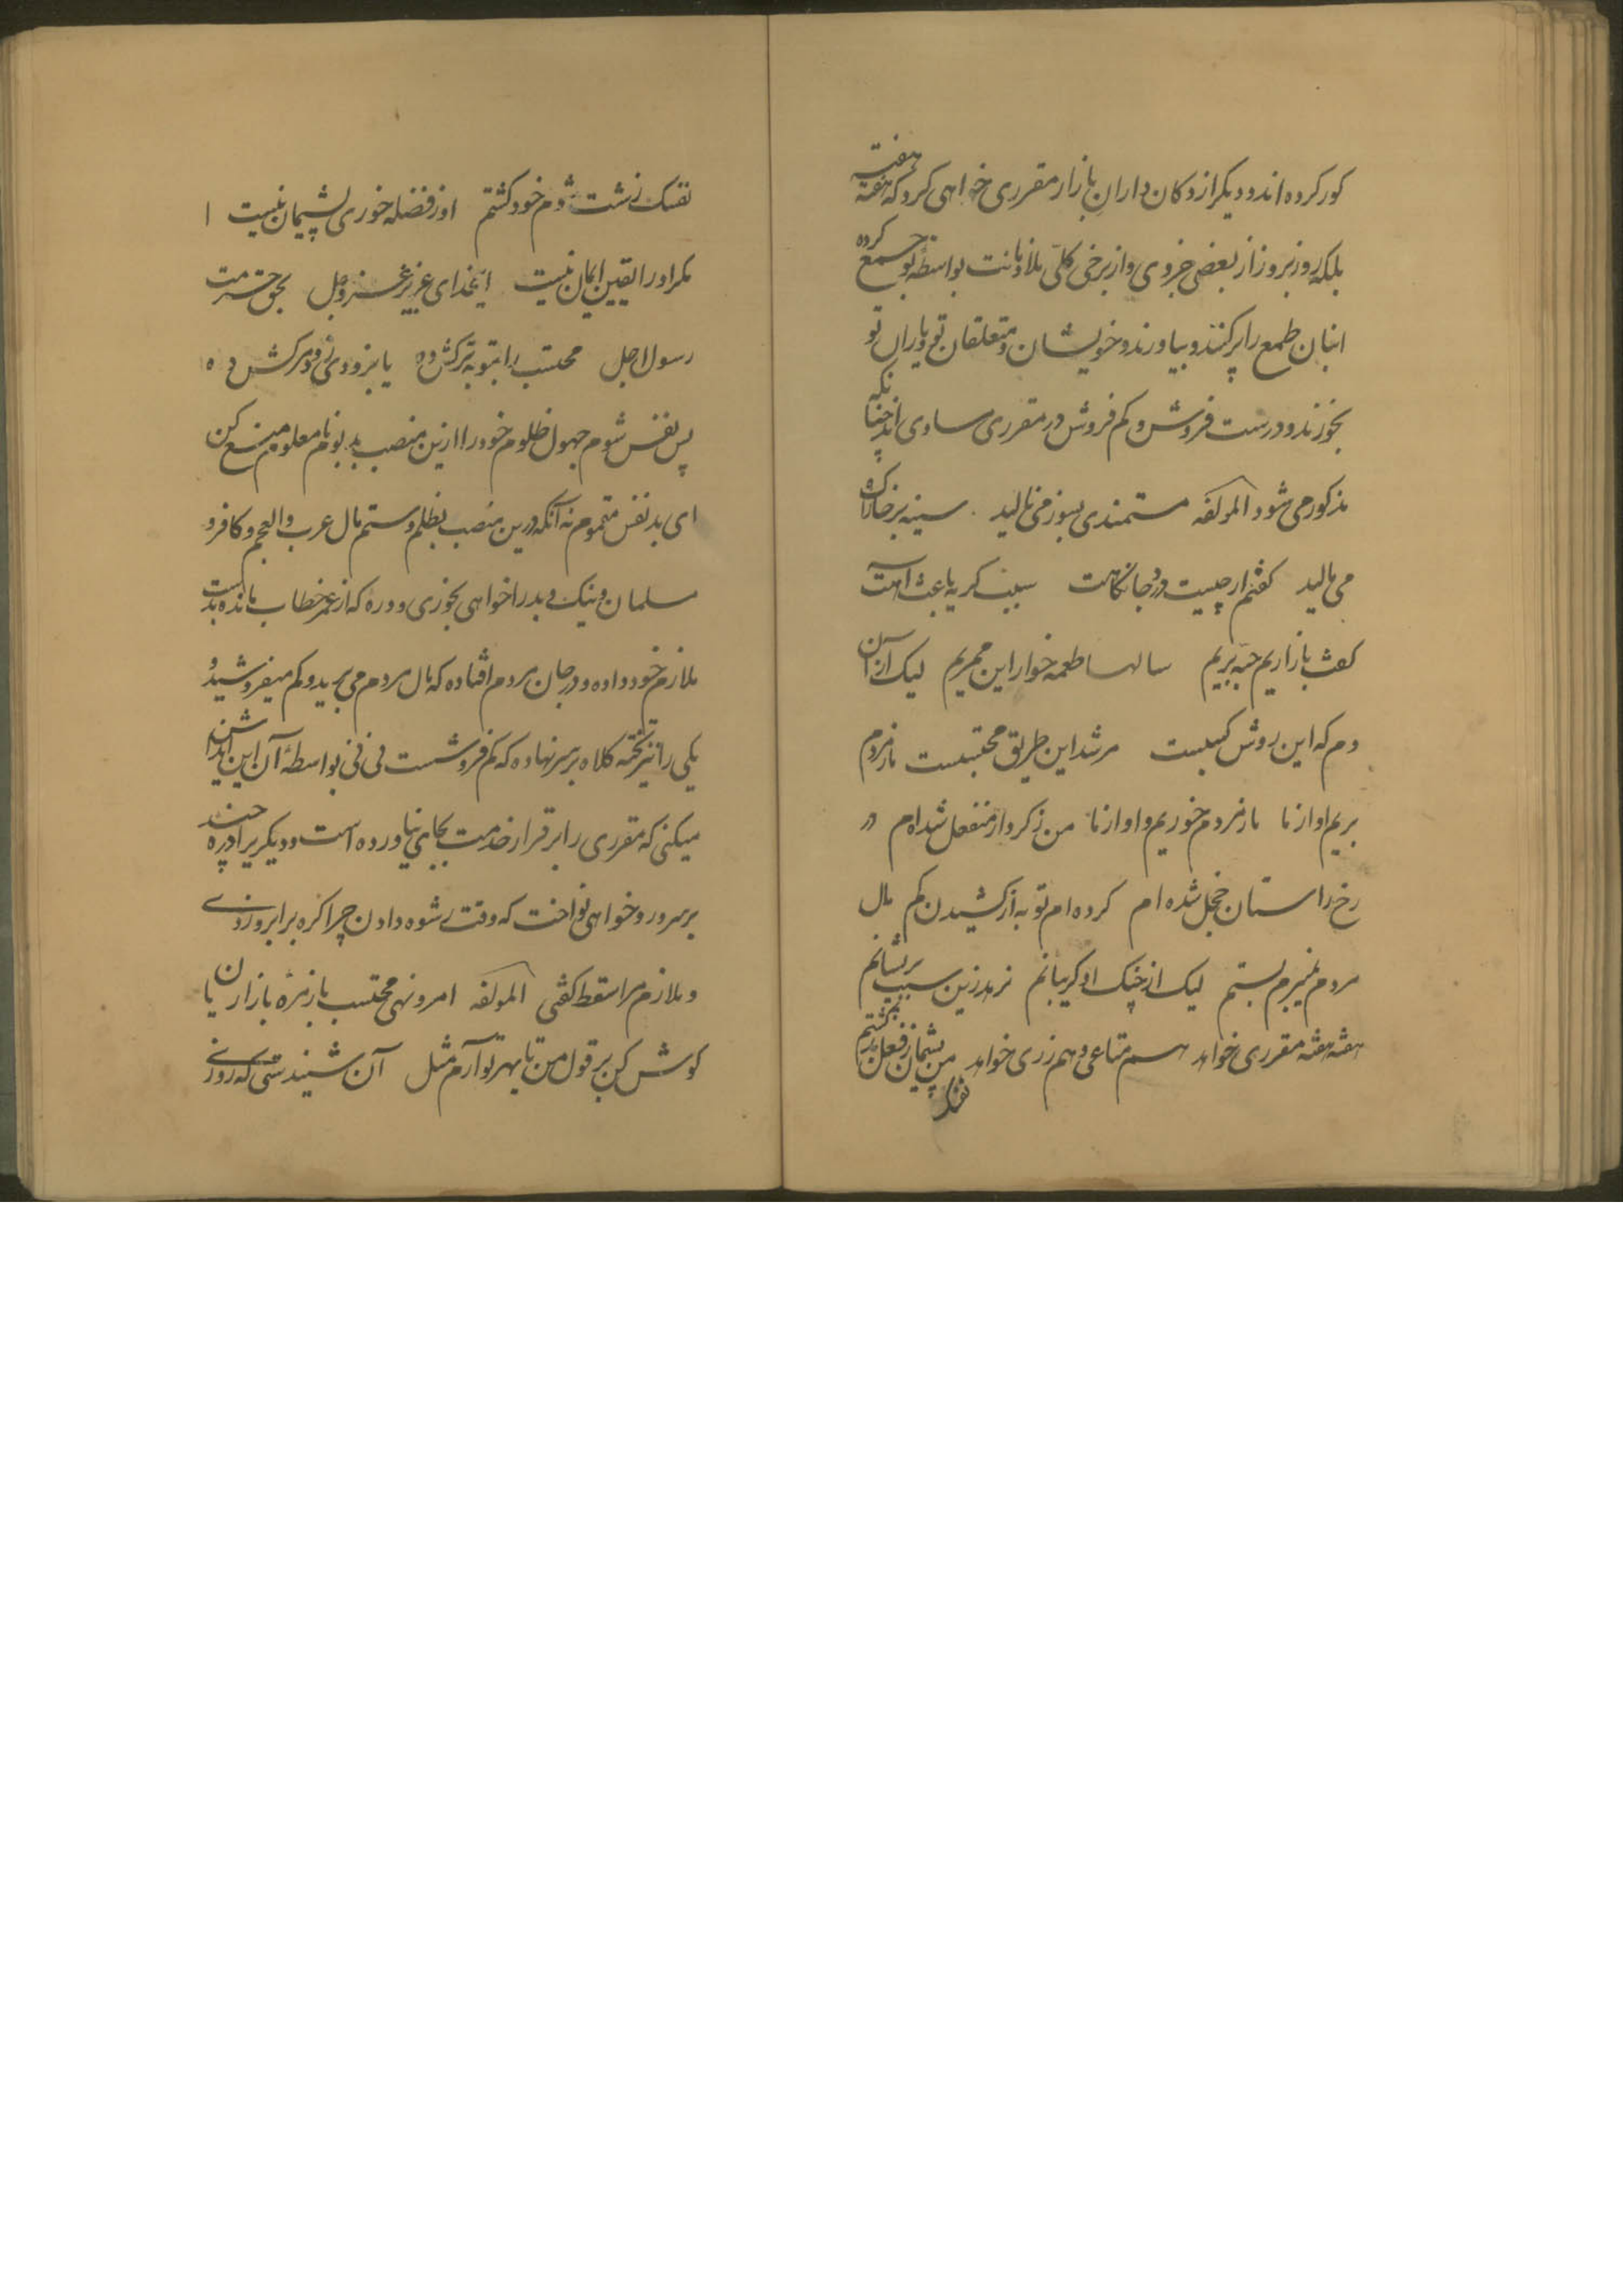 کور کرده اند و دیگر از دوکان داران بازار مقرری خواهی کرد که هفته هفته
بلکه روز بروز از بعضی جزوی و از برخی کلی ملازمانت بواسطه تو جمع کرده
انبان طمع را پر کنند و بیاورند و خویشان و متعلقان تو و یاران تو
بخورند و درست فروش و کم فروش در مقرری مساوی اند چنانکه
مذکور می شود لمولفه مستمندی بسوز می نالید سینه بر خاک راه
می مالید گفتم ار چیست درد جانکاهت سبب گریه باعث آهت
گفت بازاریم حبه بریم سالها طعمه خوار این ممریم لیک از آن
دم که این روش کسبیست مرشد این طریق محتسبست ما ز مردم
بریم او از ما ما ز مردم خوریم و او از ما من ز کردار منفعل شده ام در
رخ راستان خجل شده ام کرده ام توبه از کشیدن کم مال
مردم نمیبرم بستم لیک از چنگ او گریبانم نرهد زین سبب پریشانم
هفته هفته مقرری خواهد هم متاعی و هم زری خواهد من پشیمان ز فعل بد گشتم
نفسک
نفسک زشت شوم خود کشتم او ز فضله خوری پشیمان نیست ا
مگر او را یقین ایمان نیست ایخدای عزیز عز و جل بحق حرمت
رسول اجل محتسب را بتوبه ترکش ده یا بزودی زود مرگش ده
پس نفس شوم جهول ظلوم خود را ازین منصب بد بوم نامعلوم منع کن
ای بد نفس متهموم نه آنکه درین منصب بظلم و ستم مال عرب و العجم و کافر و
مسلمان و نیک و بد را خواهی بخوری و دره که از عمر خطاب مانده بدست
ملازم خود داده و در جان مردم افتاده که مال مردم می برید و کم میفروشید و
یکی را نیز تخته کلاه بر سر نهاده که کم فروشست نی نی بواسطه آن این
میکنی که مقرری را بر قرار خدمت بجای نیاورده است و دیگر یرا دره چند
بر سر و رو خواهی نواخت که وقت رشوه دادن چرا گره بر ابرو زدی
و ملازم مرا سقط گفتی لمولفه امر و نهی محتسب با زمره بازاریان
گوش کن بر قول من تا بهر تو آرم مثل آن شنیدستی که روزی